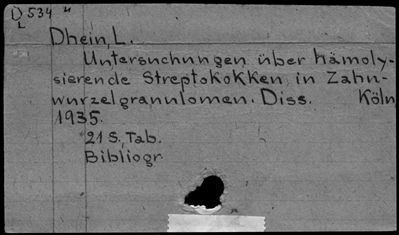 D 534 "
L
Dhein, L.
Untersuchungen über hämoly-
sierende Streptokokken in Zahn-
wurzelgranulomen. Diss. Köln
1935.
21 S., Tab.
Bibliogr